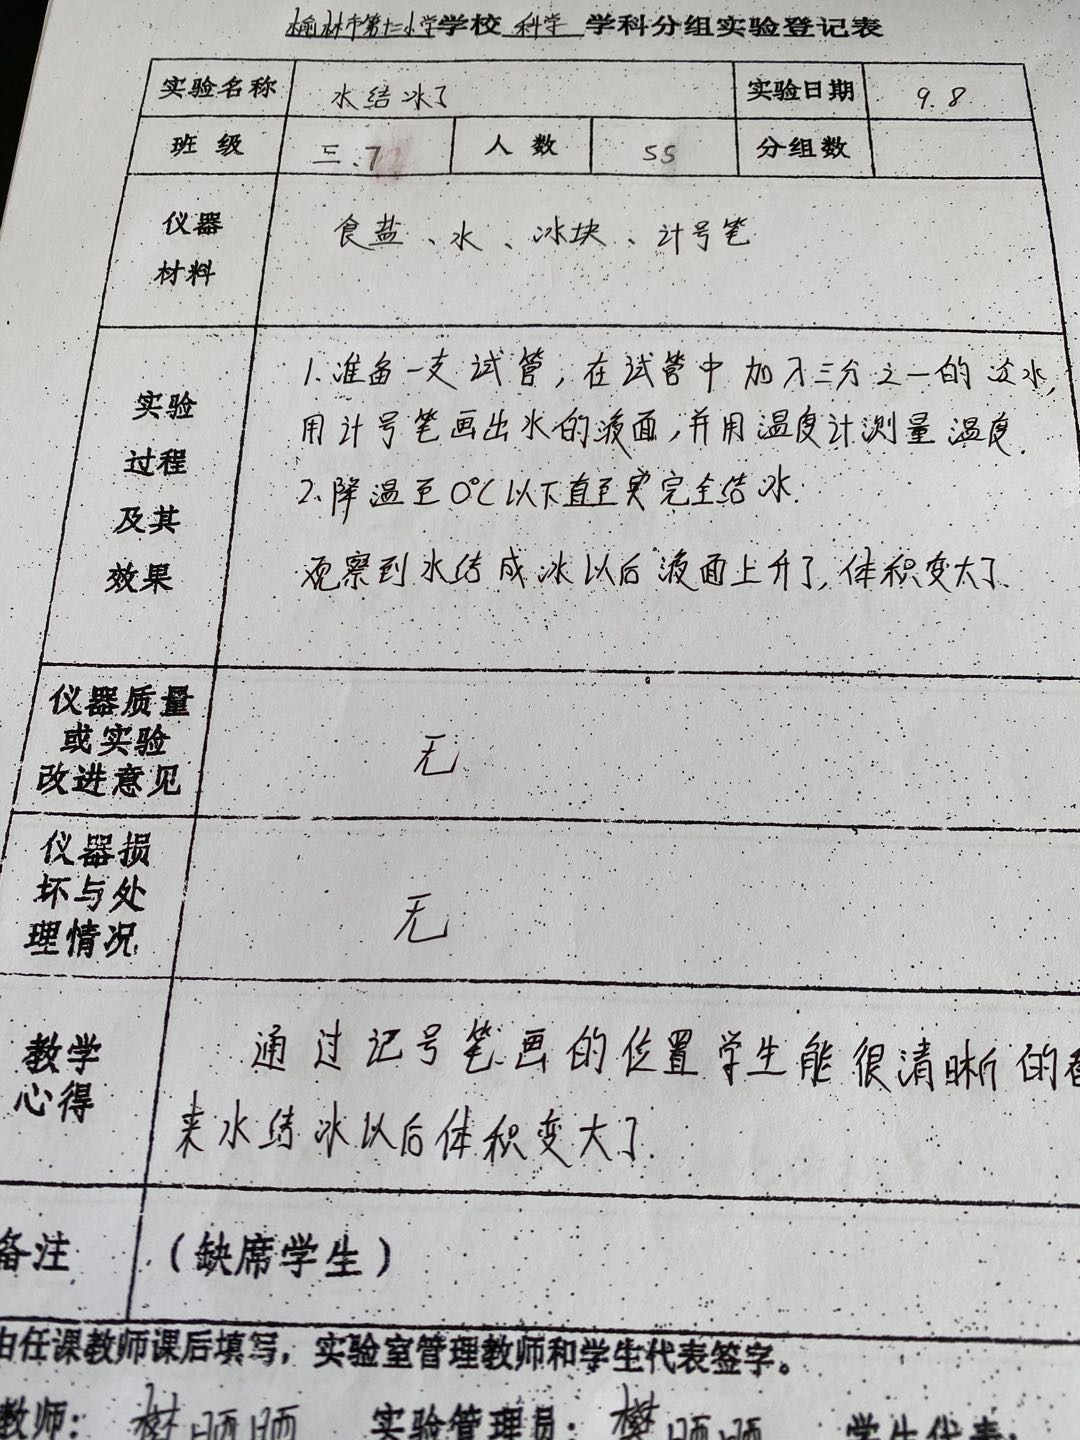 榆林市第十二小学学校 科学 学科分组实验登记表
实验名称 水结冰了 实验日期 9.8
班级 三.7 人数 55 分组数
仪器
材料
食盐、水、冰块、计号笔
实验
过程
及其
效果
1.准备一支试管,在试管中加入三分之一的淡水,
用计号笔画出水的液面,并用温度计测量温度.
2.降温至0℃以下直至完全结冰.
观察到水结成冰以后液面上升了,体积变大了.
仪器质量
或实验
改进意见
无
仪器损
坏与处
理情况
无
教学
心得
通过记号笔画的位置学生能很清晰的看
来水结冰以后体积变大了.
备注 (缺席学生)
由任课教师课后填写,实验室管理教师和学生代表签字。
教师: 樊 实验管理员: 樊 学生代表: